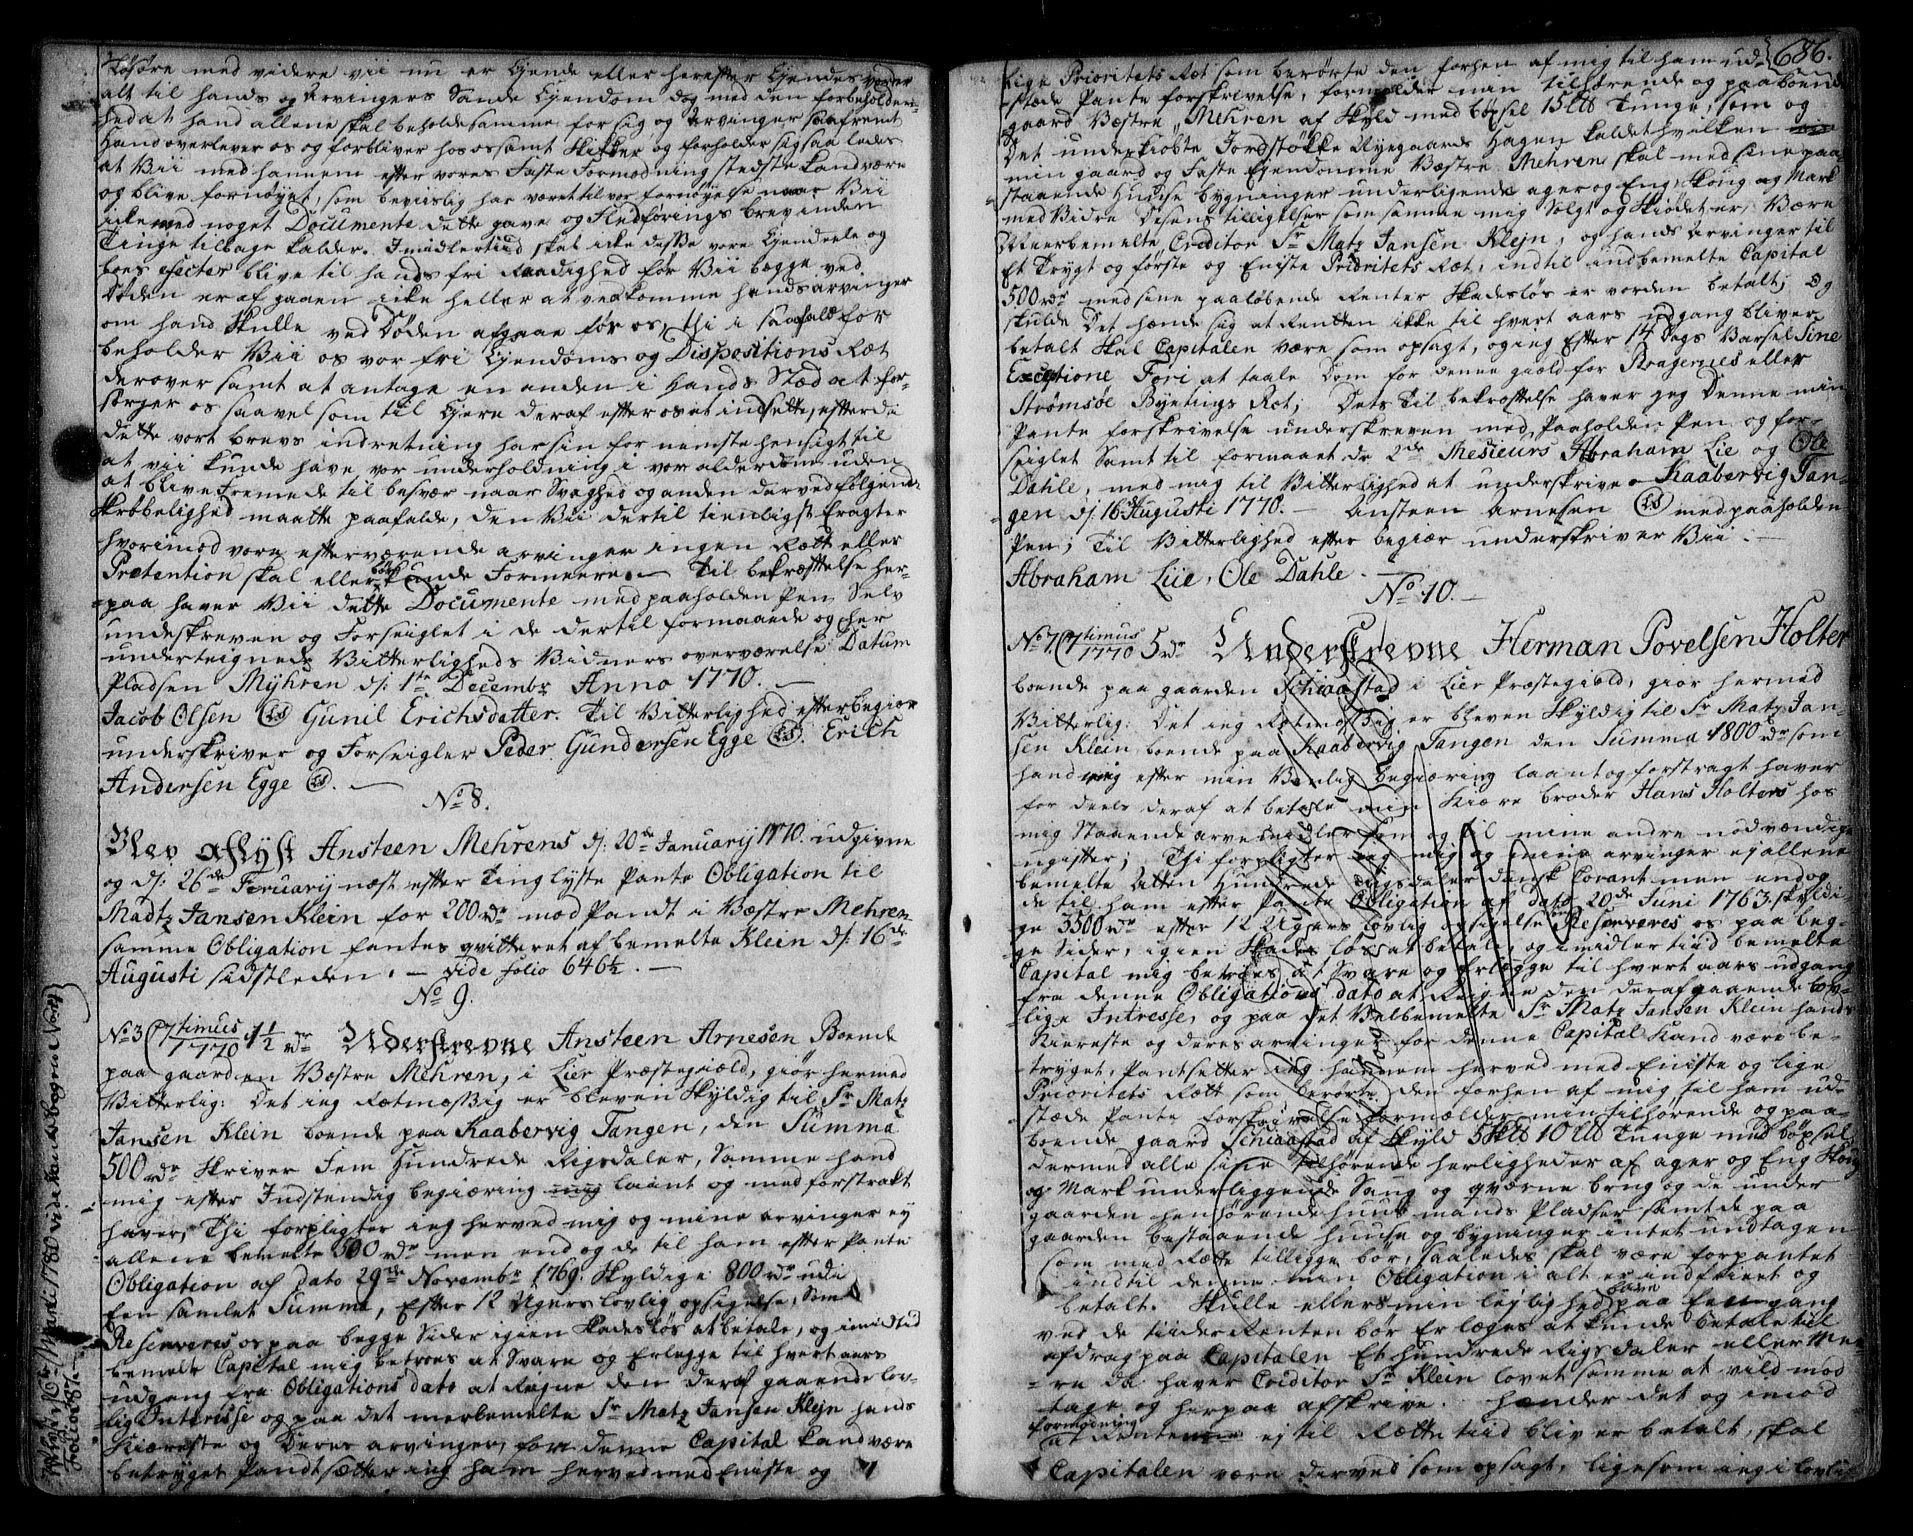 Løsøre med videre vii nu er Ejende eller herefter Ejendes vorder
alt til hands og Arvingers Sande Ejendom dog med den forbeholden-
hed at hand allene skal beholde samme for sig og arvinger saafremt
Hand overlever os og forbliver hos os samt Skikker og forholder sig saaledes
at Vii med hannem efter vores Faste Formodning stedste kand være
og blive fornøyet, som beviislig har været til vor fornøyelse naar Vii
icke med noget Documente dette gave og Fledførings brev inden
Tinge tilbage kalder. Imidlertiid skal icke disse vore Ejendeele og
boes efecter blive til hands fri Raadighed før Vii begge ved
Døden er af gaaen icke heller at vedkomme hands arvinger
om hand Skulle ved Døden afgaae før os, thi i saafald for
beholder Vii os vor fri Ejendoms og Dispositions Ræt
derover samt at antage en anden i Hands Stæd at for-
sørge os saavel som til Ejere deraf efter os at indsette, efterdi
dette vort brevs indretning har sin fornemste hensigt til
at vii kunde have vor underholdning i vor alderdom uden
at blive Fremede til besvær naar Svaghed og anden derved følgende
Skrøbelighed maatte paafalde, den Vii dertil tienligst Eragter
hvorimod vore efterværende arvinger ingen Rætt eller
Pretention skal eller bør kunde Formeere. — Til bekræftelse her-
paa haver Vii dette Documente med paaholden Pen Selv
underskreven og Forseiglet i de dertil formaaede og her
underteignede Vitterligheds Vidners overværelse Datum
Pladsen Myhren d: 1te Decembr Anno 1770. —
Jacob Olsen (LS) Gunil Erichsdatter. Til Vitterlighed efter begiør
underskriver og Forseigler Peder Gundersen Egge (LS). Erich
Andersen Egge (LS). —
No 8.
Blev aflyst Ansteen Mehrens d: 20de Januarij 1770. udgivne
og d: 26de Feruarij næst efter Tinglyste Pante Obligation til
Madtz Jansen Klein for 200 rdr mod Pandt i Væstre Mehren
samme Obligation fantes qvitteret af bemelte Klein d: 16de
Augusti sidstleden. — vide folio 646½. —
No 9.
No 3 (7timus 1770 1½ rdr Understrevne Ansteen Arnesen Boende
paa gaarden Væstre Mehren, i Lier Præstegiæld, giør hermed
Vitterlig: Det ieg Rætmæssig er bleven Skyldig til Sr Matz
Jansen Klein boende paa Kaabervig Tangen, den Summa
500 rdr Skriver Fem Hundrede Rigsdaler, Samme hand
mig efter Indstendig begiæring laant og med forstrakt
haver, Thi forpligter ieg herved mig og mine arvinger ey
allene bemelte 500 rdr men end og de til ham efter Pante
Obligation af Dato 29de Novembr 1769. Skyldige 800 rdr udi
Een samlet Summa, Efter 12 Ugers lovlig opsigelse, Som
Reserveres os paa begge Sider igien Skadesløs at betale, og imidtid
bemelte Capital mig betroes at Svare og Erlegge til hvert aars
udgang fra Obligations dato at Reigne den deraf gaaende lov-
lig Interisse og paa det merbemelte Sr Matz Jansen Klejn hands
Kiæreste og Deres arvinger, for denne Capital kand være
betrygget Pandtsætter ieg ham herved med Eniste og
686.
lige Prioritets Ræt som berørte den forhen af mig til ham ud-
stæde Pante forskrivelse, formelder min tilhørende og paaboende
gaard Væstre Mehren af Skyld med bøxsel 15 lb Tunge, som og
Det underkiøbte Jordstøkke Ryegaards Hagen kaldet hvilken
min gaard og Faste Ejendomme Væstre Mehren skal med sine paa
staaende Huuse bygninger underligende ager og Eng Skoug og Mark
med Vidre Disens tilligelser som samme mig Solgt og Skiødet er, Være
Meerbemelte Creditor Sr Matz Jansen Klejn, og hands Arvinger til
Et Trygt og første og Eniste Prioritets Ræt, indtil indbemelte Capital
500 rdr med sine paaløbende Renter Skadesløs er vorden betalt; og
skulde Det hænde sig at Rentten ikke til hvert aars udgang bliver
betalt Skal Capitalen være som opsagt, og ieg Efter 14 Dags Varsel Sine
Exceptione Fori at taale Dom for denne giæld for Bragernes eller
Strømsøe Byetings Ræt; Dets Til bekræftelse haver jeg Denne min
Pante forskrivelse underskreven med Paaholden Pen og for-
seiglet Samt til formaaet de 2de Mesieurs Abraham Lie og Ole
Dahle, med mig til Vitterlighed at underskrive. Kaabervig Tan-
gen d: 16de Augusti 1770. — Ansteen Arnesen (LS) med paaholden
Pen; Til Vitterlighed efter begiær underskriver Vii. —
Abraham Liie, Ole Dahle. —
No 10. —
No 7 (7timus 1770 5 rdr Understrevne Herman Povelsen Holter
boende paa gaarden Schiaastad i Lier Præstegiæld, giør hermed
Vitterlig: Det ieg Rætmæssig er bleven Skyldig til Sr Matz Jan-
sen Klein boende paa Kaabervig Tangen den Summa 1800 rdr som
hand mig efter min Venlig begiæring laant og forstragt haver
for deels deraf at betale min Kiære broder Hans Holters hos
mig Staaende arve midler som og til mine andre nødvændige
ugifter; Thi forpligter ieg mig og mine arvinger ej allene
bemelte Atten Hundrede Rigsdaler Dansk Corant men end og
de til ham efter Pante Obligation af dato 20de Juni 1763. skyldi-
ge 3500 rdr efter 12 Ugers lovlig opsigelse som Reserveres os paa beg-
ge Sider, igien Skadesløs at betale, og imidler tiid bemelte
Capital mig betroes at Svare og Erlegge til hvert aars udgang
fra denne Obligations dato at Reigne den deraf gaaende lov-
lige Intresse, og paa det Velbemelte Sr Matz Jansen Klein hands
Kiereste og deres arvinger for denne Capital Kand være be-
trygget, Pantsetter ieg hannem herved med Eniste og lige
Prioritets Rætt som berørte den forhen af mig til ham ud-
stæde Pante forskrivelse formælder min tilhørende og paa-
boende gaard Schiaastad af Skyld 5 Sklb 10 lb Tunge med bøxsel
dermed alle sine tilhørende herligheder af ager og Eng Skoug
og Mark underliggende Saug og qværne brug og de under
gaarden henhørende huus mands Pladser samt de paa
gaarden bestaaende huuse og bygninger intet undtagen
som med Rætte tilligge bør, saaledes skal være forpantet
indtil denne min Obligation i alt er indfriet og
betalt. Skulle ellers min lejlighed være paa Een gang
ved de tiider Renten bør Erleges at kunde betale til
afdrag paa Capitalen Et hundrede Rigsdaler eller Me-
re da haver Creditor Sr Klein lovet samme at vild mod
tage og herpaa afskrive. hænder det og imod
formodning
at Renterne ej til Rætte tiid bliver betalt, skal
Capitalen være derved som opsagt, ligesom ieg i lovlig